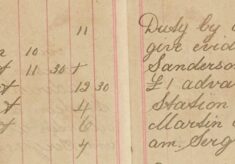 11 Duty by
n 10 give evid
t 11 30 t Sanderson
t 12 30 £1 adva
t 4 Station
t 6 Martin
4 am. Serg